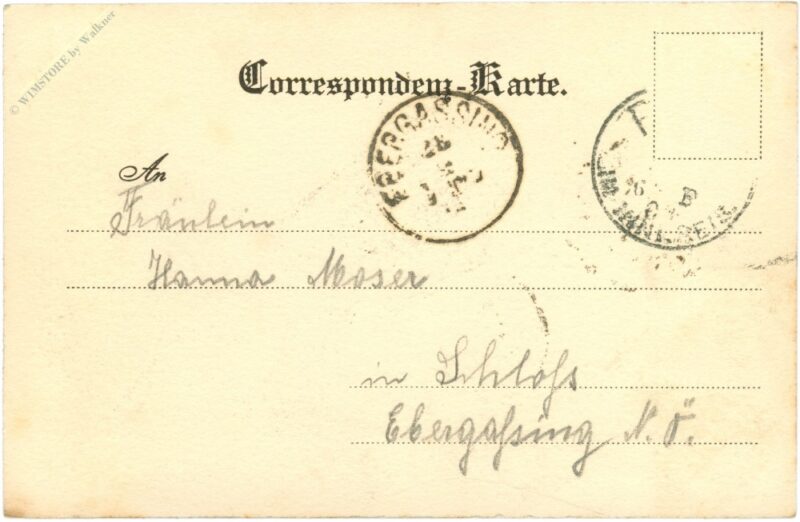 © WIMSTORE by Walkner
Correspondenz-Karte.
EBERGASSING
An
16 B
IM INNKREIS.
Fräulein
Hanna Moser
in Schloſs
Ebergaſsing N. Ö.